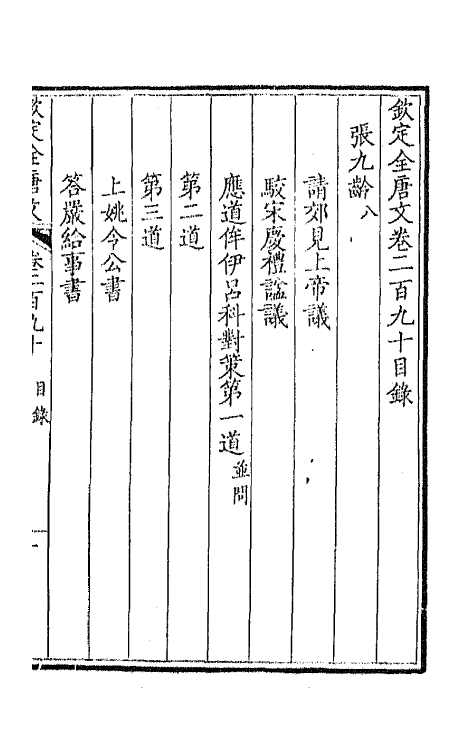 欽定全唐文卷二百九十目錄
張九齡八
請郊見上帝議
駮宋慶禮謚議
應道侔伊呂科對策第一道並問
第二道
第三道
上姚令公書
答嚴給事書
欽定全唐文 卷二百九十 目錄 一